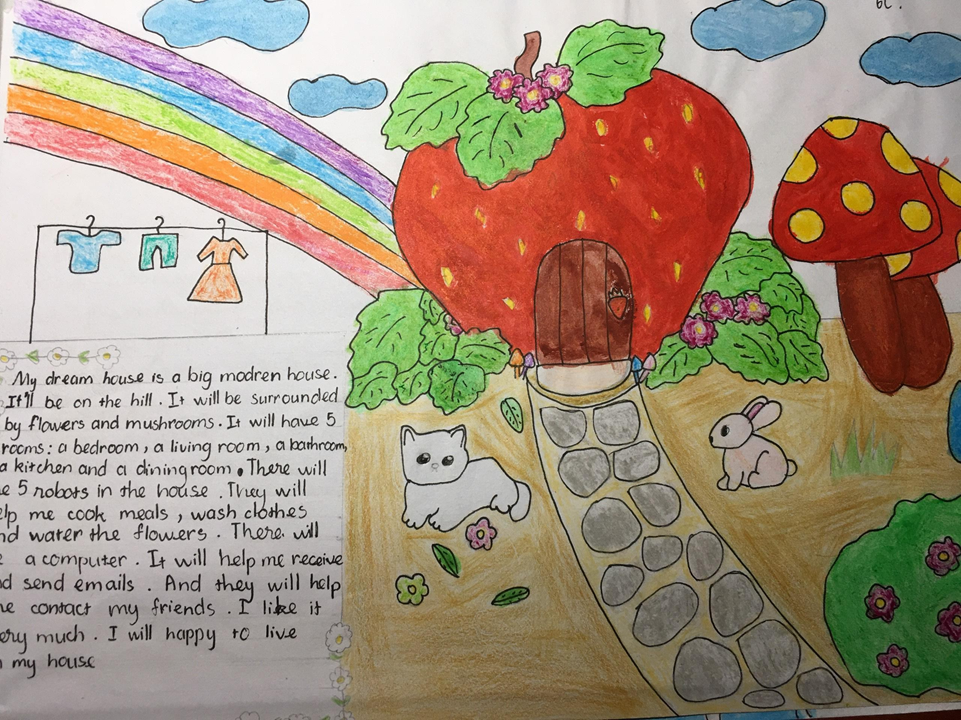 6C.
My dream house is a big modren house.
It'll be on the hill. It will be surrounded
by flowers and mushrooms. It will have 5
rooms: a bedroom, a living room, a bathroom,
a kitchen and a dining room. There will
e 5 robots in the house. They will
elp me cook meals, wash clothes
nd water the flowers. There will
e a computer. It will help me receive
d send emails. And they will help
e contact my friends. I like it
ery much. I will happy to live
n my house